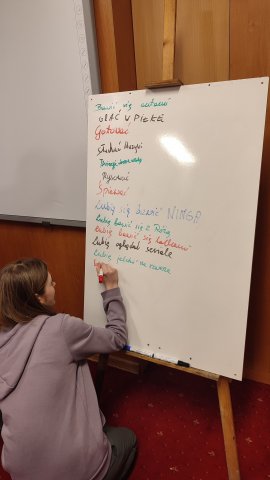 Bawić się autami
GRAĆ W PIŁKĘ
Gotować
Słuchać Muzyki
Rysować
Śpiewać
Lubię się bawić NINGA
Lubię bawić się z Różą
Lubię bawić się lalkami
Lubię oglądać seriale
Lubię jeździć na